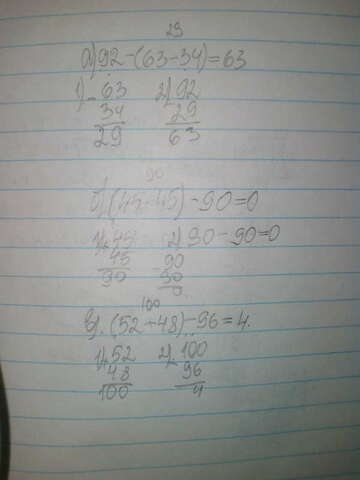 29
а) 92-(63-34)=63
1) - 63 2) - 92
34 29
29 63
90
б) (45+45)-90=0
1) + 45 2) 90-90=0
45 - 90
90 90
0
100
в) (52+48)-96=4.
1) + 52 2) - 100
48 96
100 4